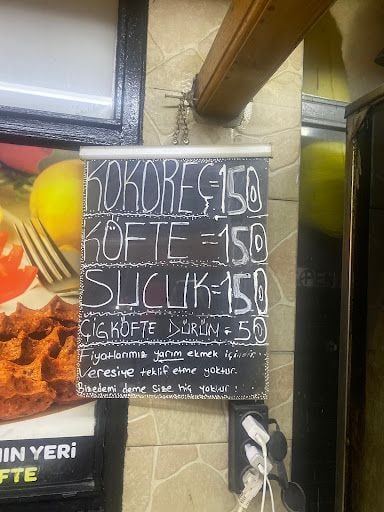 KOKOREÇ=150
KÖFTE=150
SUCUK=150
ÇİGKÖFTE DÜRÜM=50
Fiyatlarımız yarım ekmek içindir.
Veresiye teklif etme yoktur.
Bizedemi deme size hiç yoktur.
NIN YERİ
FTE